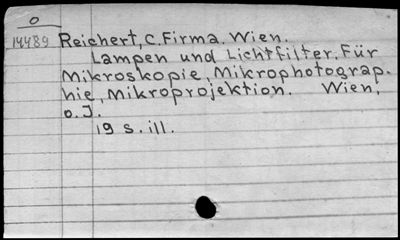 O
14489 Reichert, C. Firma. Wien.
Lampen und Lichtfilter. Für
Mikroskopie, Mikrophotograp.
hie, Mikroprojektion. Wien,
o. J.
19 s. ill.